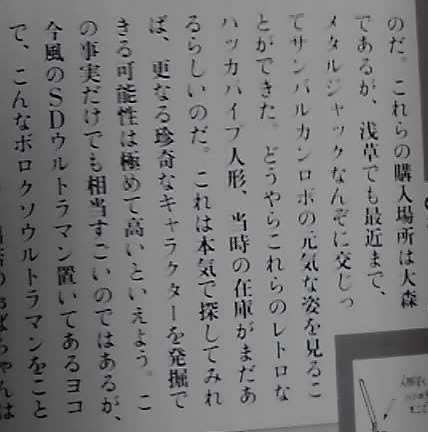 のだ。これらの購入場所は大森
であるが、浅草でも最近まで、
メタルジャックなんぞに交じっ
てサンバルカンロボの元気な姿を見るこ
とができた。どうやらこれらのレトロな
ハッカパイプ人形、当時の在庫がまだあ
るらしいのだ。これは本気で探してみれ
ば、更なる珍奇なキャラクターを発掘で
きる可能性は極めて高いといえよう。こ
の事実だけでも相当すごいのではあるが、
今風のSDウルトラマン置いてあるヨコ
で、こんなボロクソウルトラマンをこと
おばちゃんは